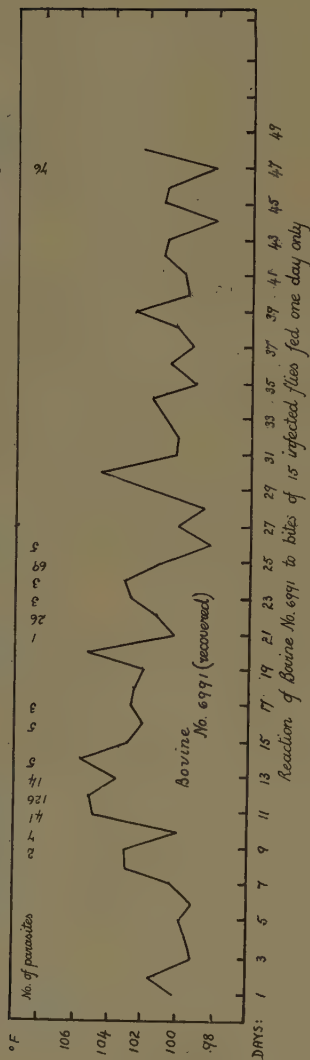 °F
No. of parasites 2 7 41 126 14 5 5 3 1 26 3 3 69 5 76
106
104
102
100
98
Bovine
No. 6991 (recovered)
DAYS: 1 3 5 7 9 11 13 15 17 19 21 23 25 27 29 31 33 35 37 39 41 43 45 47 49
Reaction of Bovine No. 6991 to bites of 15 infected flies fed one day only